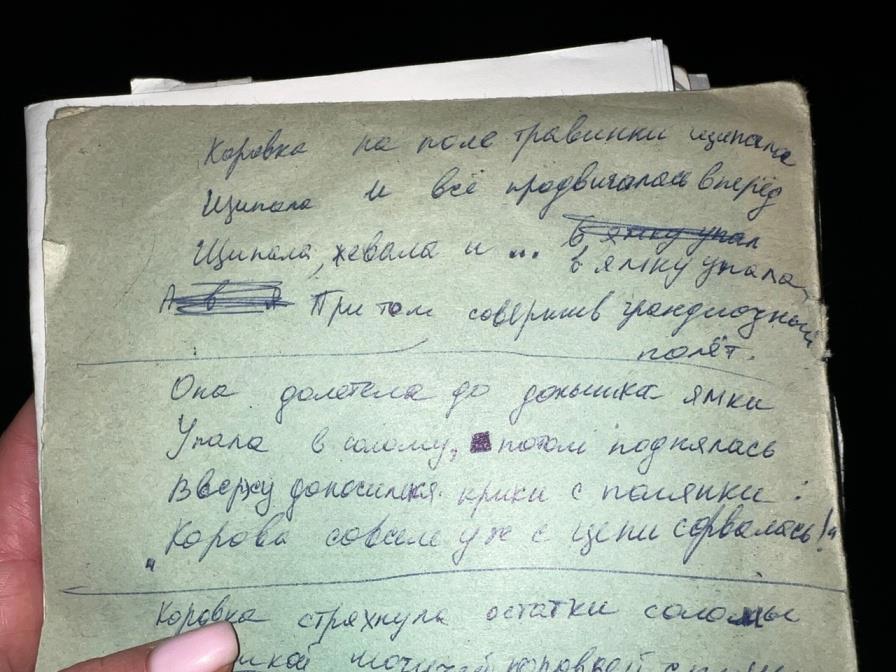 Коровка на поле травинки щипала
Щипала и всё продвигалась вперёд
Щипала, жевала и ... в ямку упал
в ямку упала,
При том совершив грандиозный
полёт.
Она долетела до донышка ямки
Упала в солому, потом поднялась
Вверху доносились крики с полянки:
"Корова совсем уж с цепи сорвалась!"
Коровка стряхнула остатки соломы
коровкой